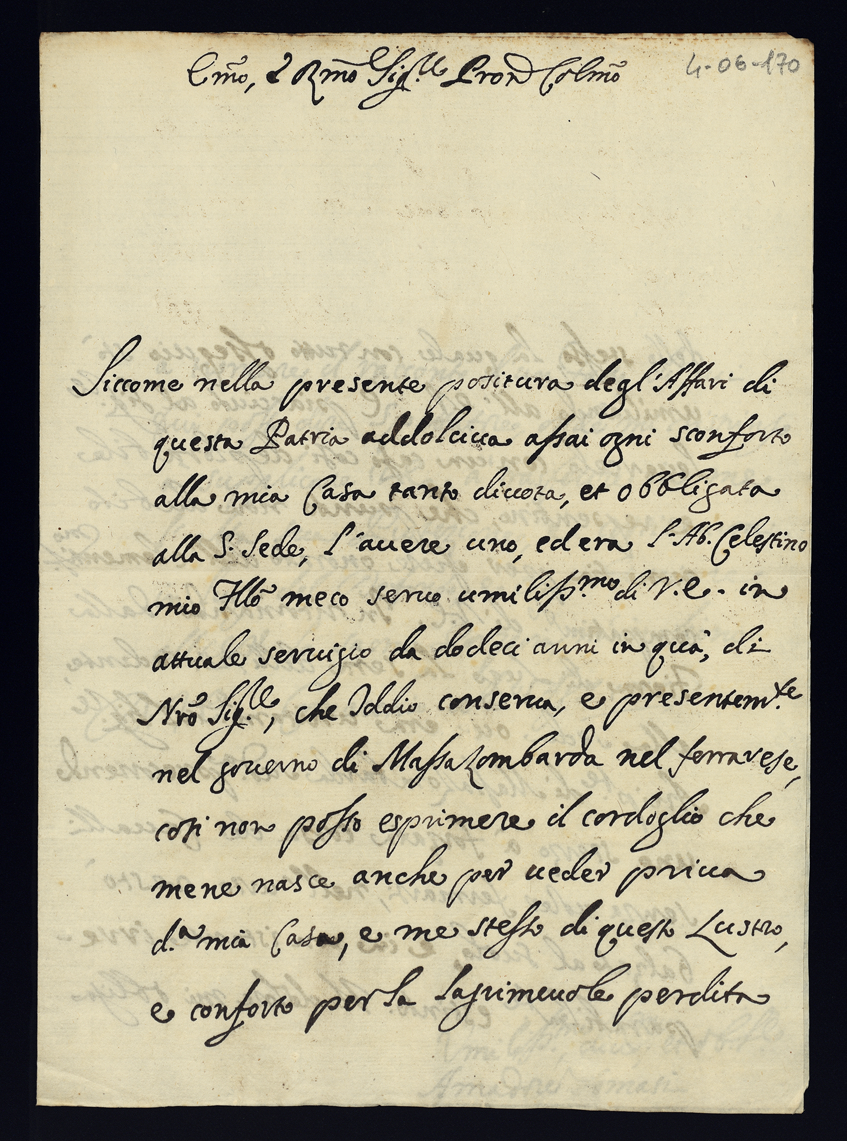 Emo, e Rmo Sig.re Pron Colmo
4-06-170
Siccome nella presente positura degl'Affari di
questa Patria addolciua assai ogni sconforto
alla mia Casa tanto diuota, et obbligata
alla S. Sede, l'auere uno, ed era l'Ab. Celestino
mio Fllo meco seruo umiliss.mo di V.E. in
attuale seruigio da dodeci anni in quà, di
Nro Sig.re, che Iddio conserua, e presentem.te
nel gouerno di Massalombarda nel ferrarese,
così non posso esprimere il cordoglio che
mene nasce anche per ueder priua
d.a mia Casa, e me stesso di questo Lustro,
e conforto per la lagrimeuole perdita